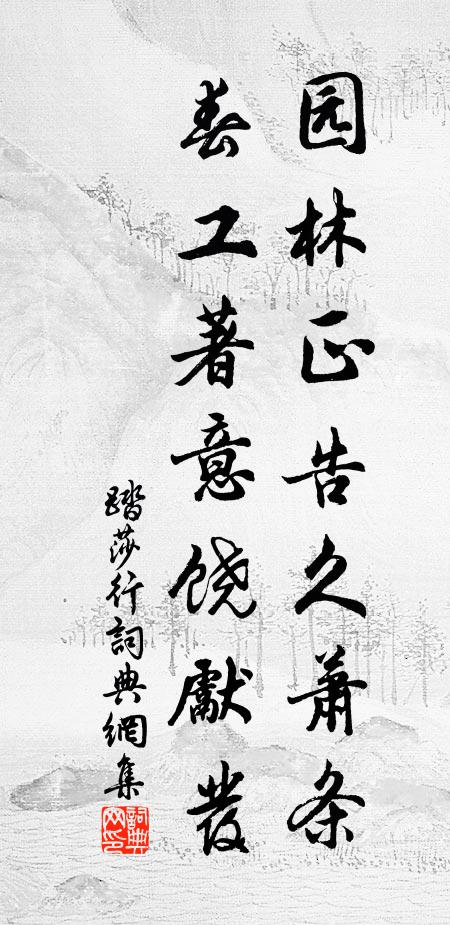 园林正告久蕭条
春工著意饶獻發
踏莎行詞典網集
詞典网印